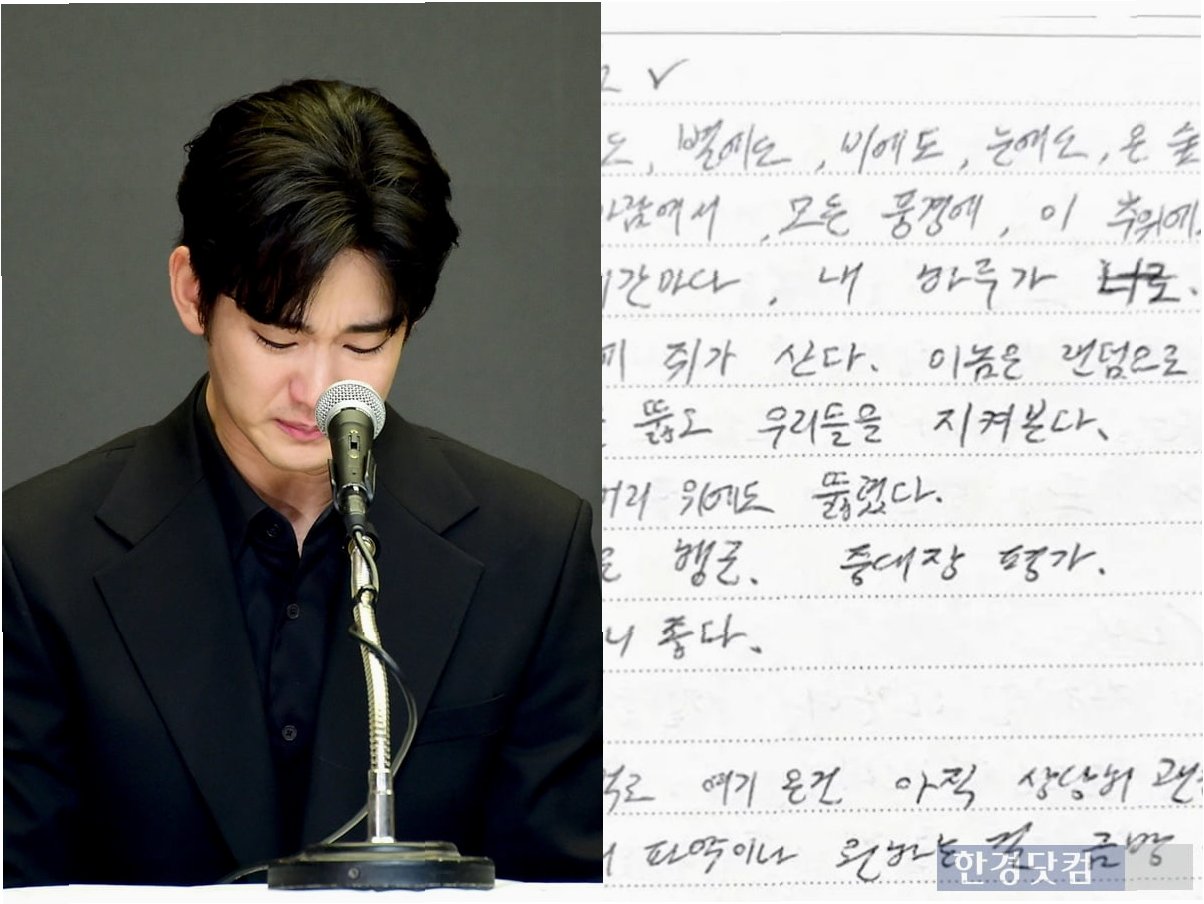 ✓
도, 별에도, 비에도, 눈에도, 온 술
사람에서, 모든 풍경에, 이 추위에.
시간마다, 내 하루가 너로.
쥐가 산다. 이놈은 랜덤으로
뚫고 우리들을 지켜본다.
머리 위에도 뚫렸다.
행군. 중대장 평가.
니 좋다.
여기 온건 아직 상당히
파악이나 원하는 걸 금방
한경닷컴